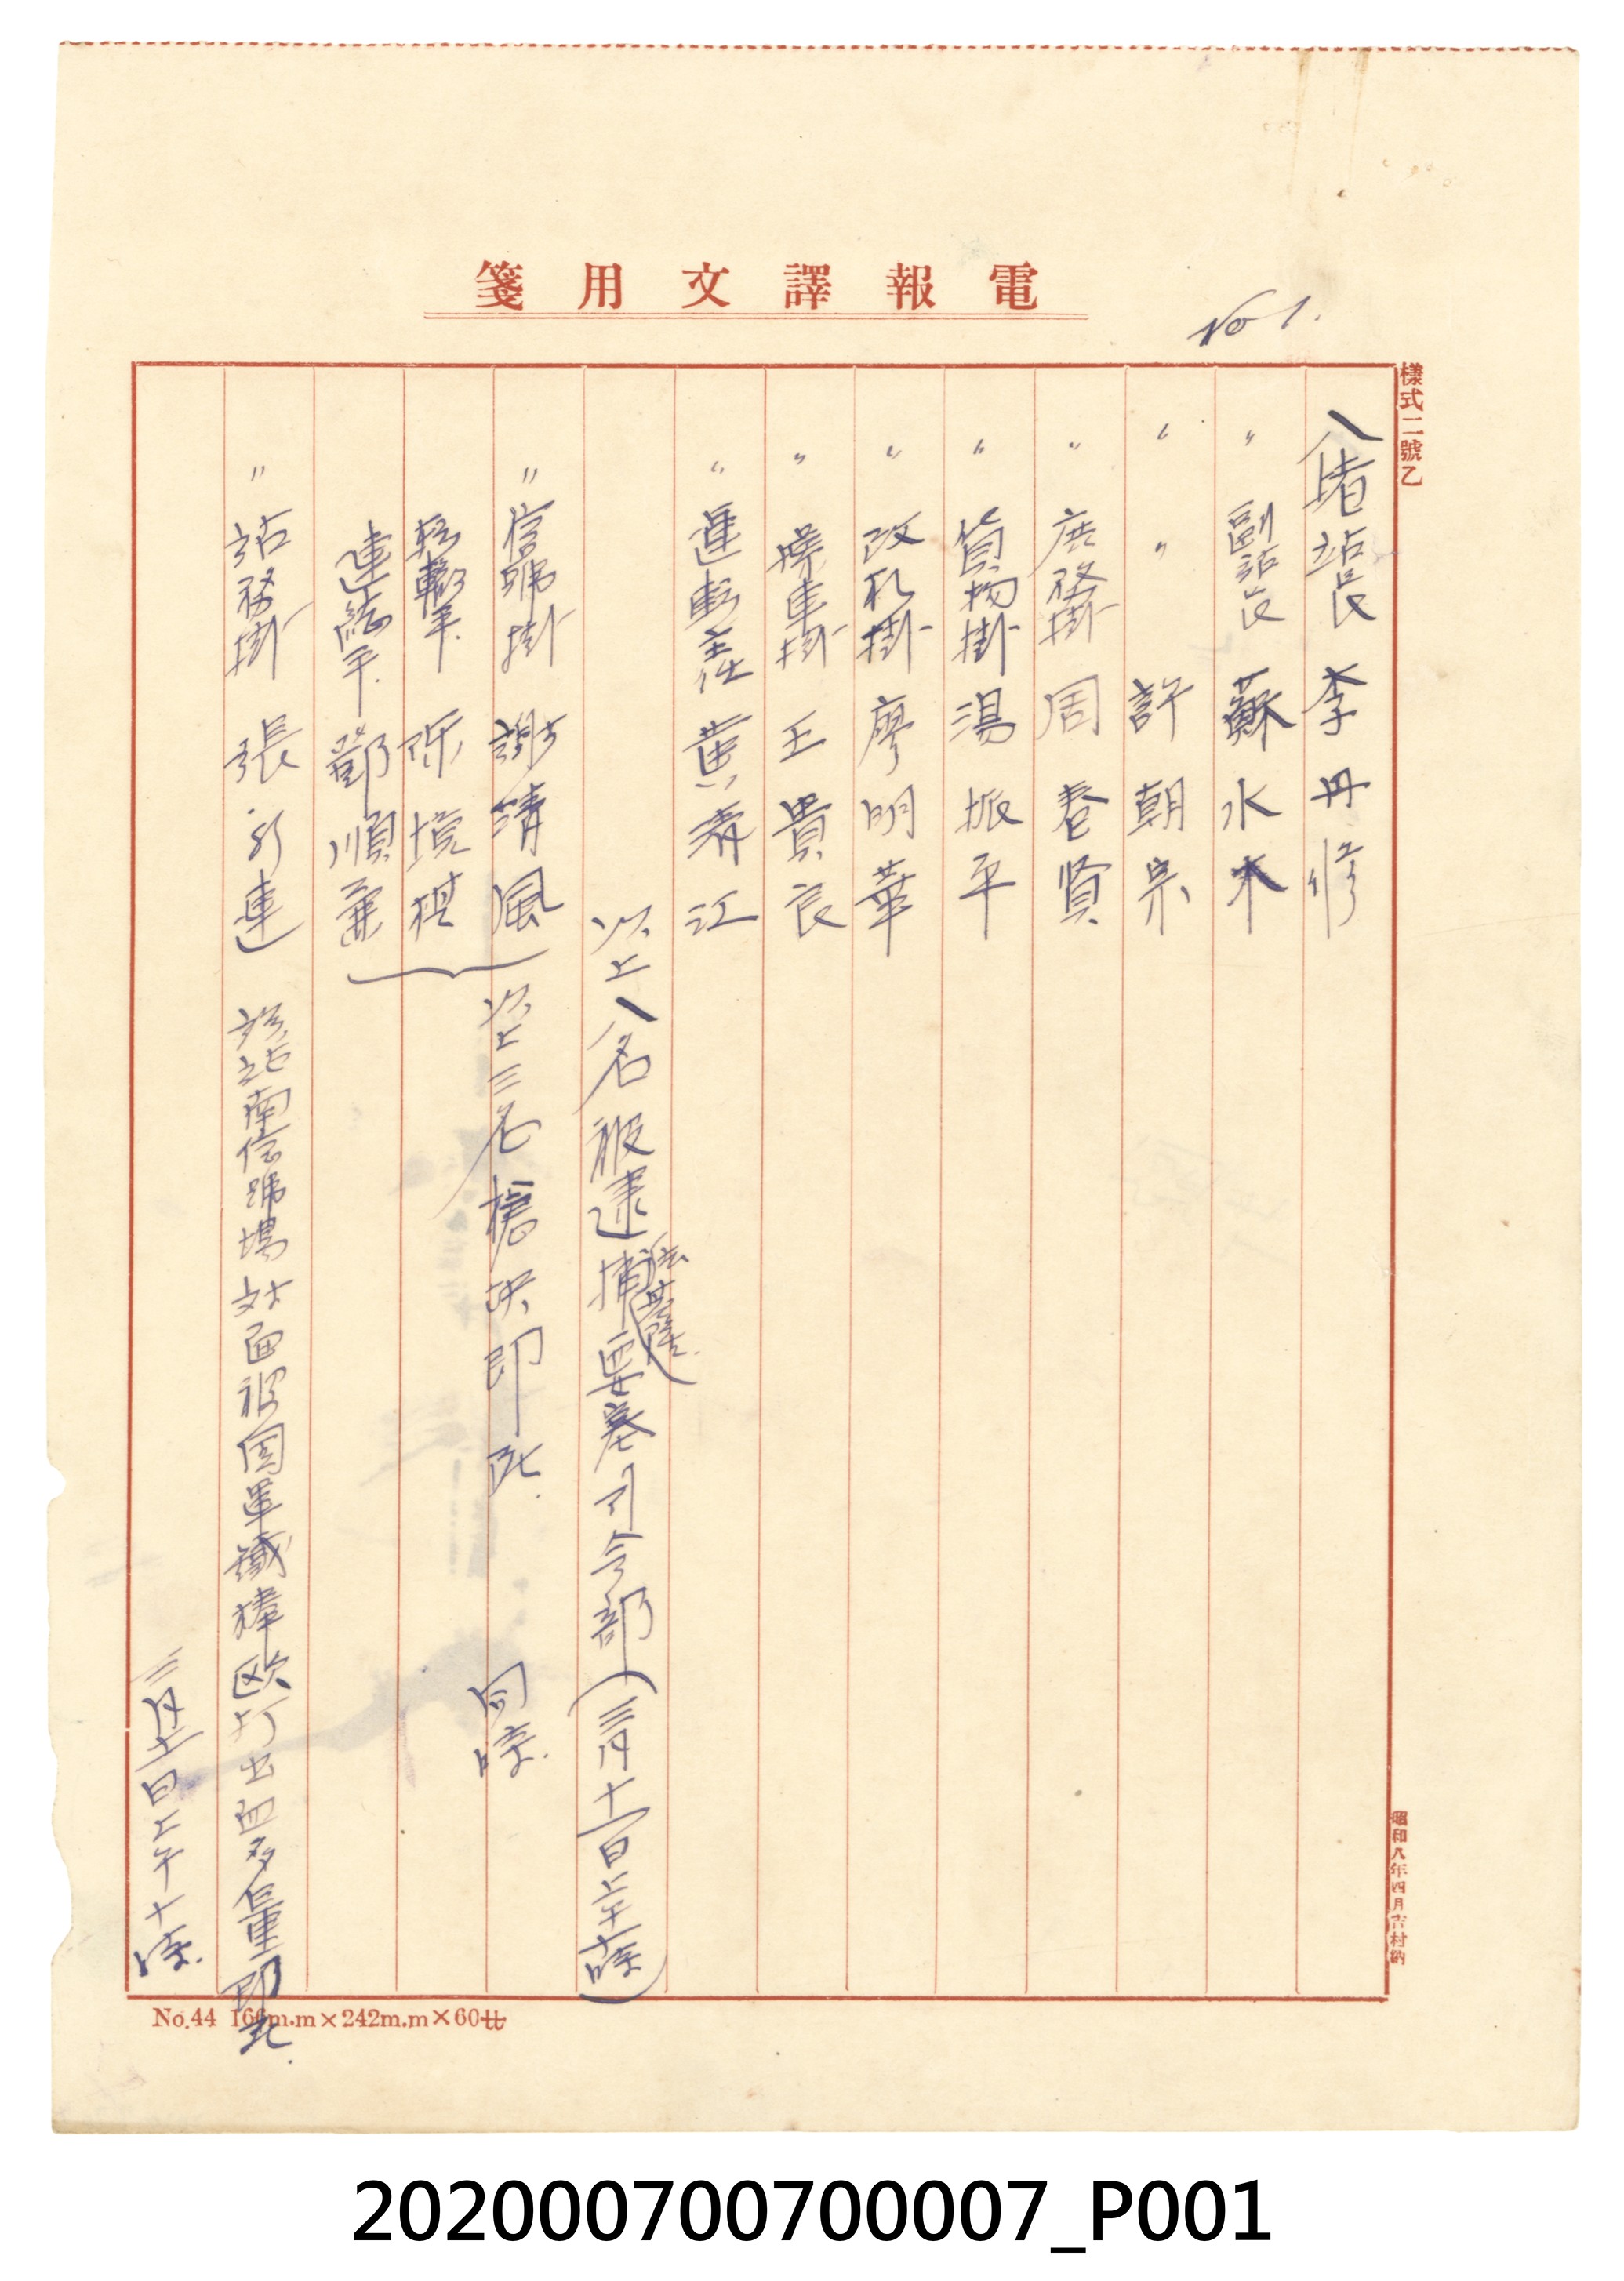 電報譯文用箋
No 1.
樣式二號乙
八堵站長 李丹修
〃 副站長 蘇水木
〃 〃 許朝宗
〃 庶務掛 周春賢
〃 貨物掛 湯振平
〃 改札掛 廖明華
〃 操車掛 王貴良
〃 運転主任 黃清江
以上八名被逮捕要塞司令部(三月十一日上午十時)
〃 信號掛 謝清風
転轍手 陳境棋
連結手 鄧順兼
以上三名槍決即死. 同時.
〃 站務掛 張 連 該站南信號場対面被国軍鐵棒欧打出血多量即死.
三月十一日上午十時.
昭和八年四月吉村納
No.44 166m.m×242m.m×60廿
202000700700007_P001